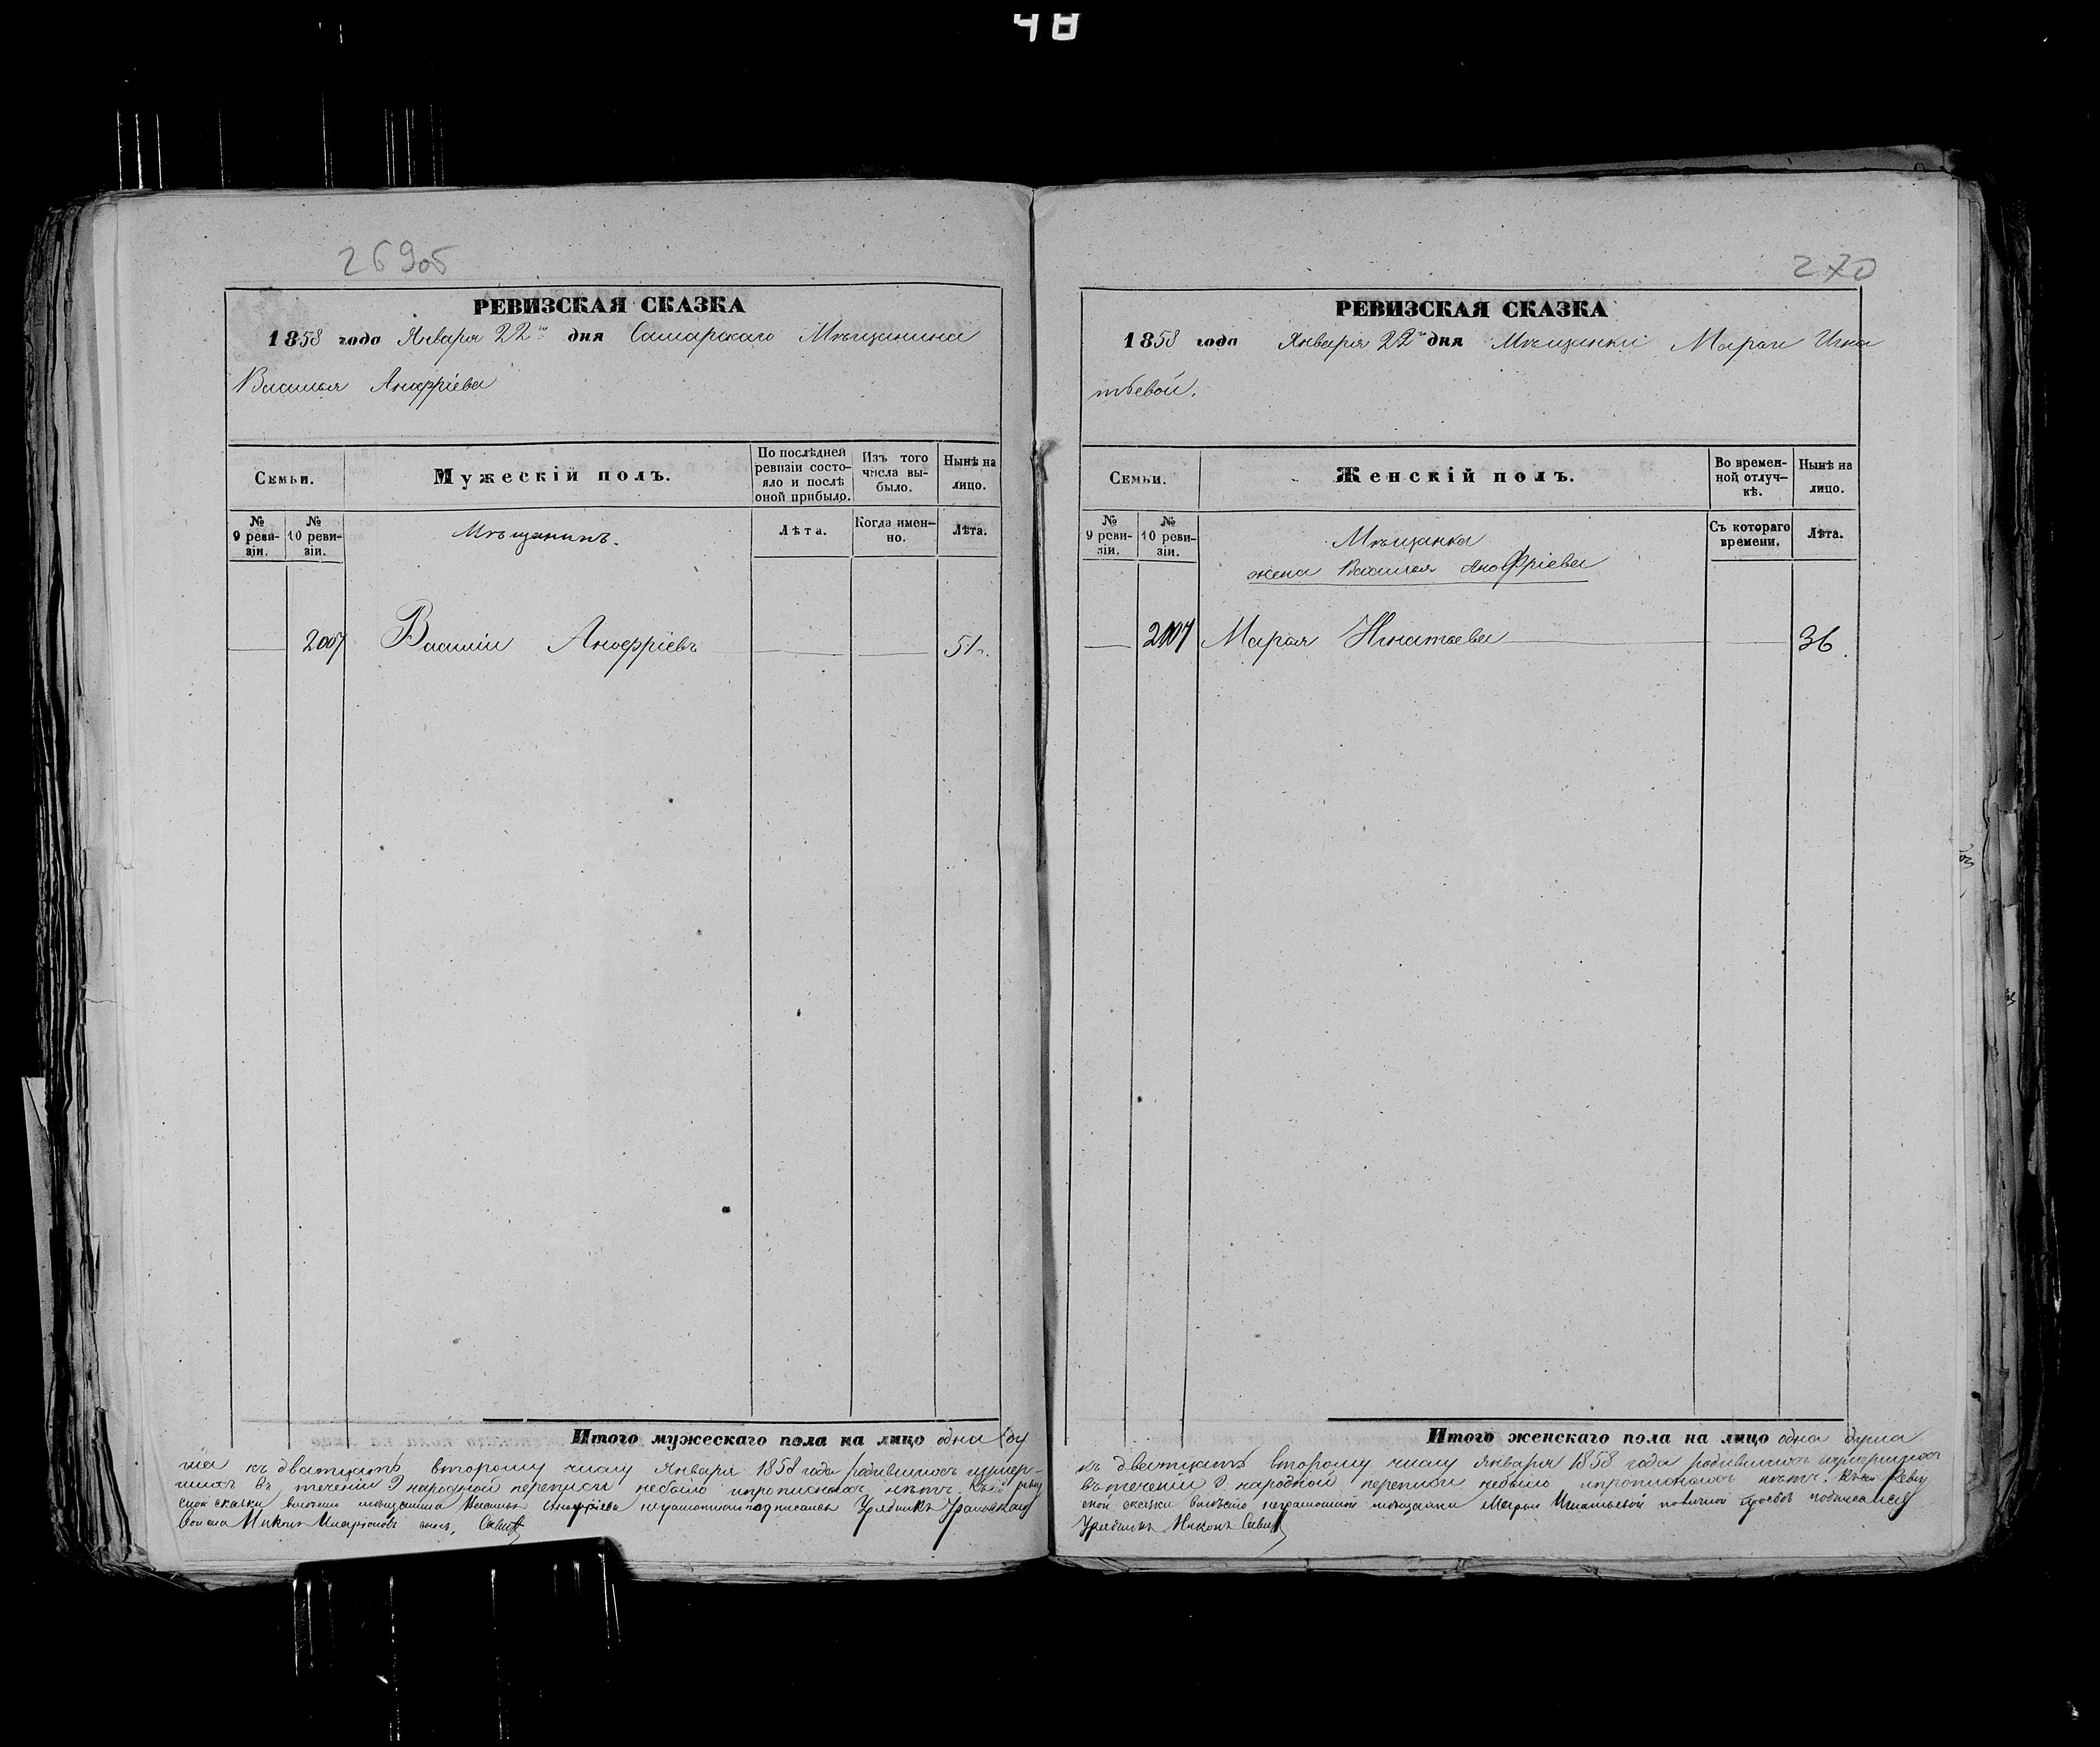 48
269об
РЕВИЗСКАЯ СКАЗКА
1858 года Января 22го дня Самарскаго Мѣщанина
Василья Анофріева
Семьи.
Мужескій полъ.
По послѣдней ревизіи состо-
яло и послѣ
оной прибыло.
Изъ того
числа вы-
было.
Нынѣ на
лицо.
№
9 реви-
зіи.
№
10 реви-
зіи.
Мѣщанинъ.
Лѣта.
Когда имен-
но.
Лѣта.
2007 Василіи Анофріевъ 51.
Итого мужескаго пола на лицо одна ду
ша къ дватцать второму числу Января 1858 года родившихсъ иумер-
шихъ въ течении 9 народной переписи небыло ипрописныхъ нѣтъ. Къ сей ревиз
ской сказки вмѣсто мѣщанина Василья Анофріева неграмотнаго подписалсь Урядникъ Уральскаго
Войска Никонъ сынъ, Савич
270
РЕВИЗСКАЯ СКАЗКА
1858 года Января 22го дня Мѣщанки Марьи Игна
тьевой.
Семьи.
Женскій полъ.
Во времен-
ной отлуч-
кѣ.
Нынѣ на
лицо.
№
9 реви-
зіи.
№
10 реви-
зіи.
Мѣщанка
жена Василья Анофріева
Съ котораго
времени.
Лѣта.
2007 Марья Игнатьева 36.
Итого женскаго пола на лицо одна душа
къ дватцать второму числу Января 1858 года родившихсъ иумершихъ
въ течении 9 народной переписи небыло ипрописныхъ нѣтъ. Къ сей Ревиз
ской сказки вмѣсто неграмотной мѣщанки Марьи Игнатьевой поличной просьбѣ подписалсь
Урядникъ Никонъ Савич